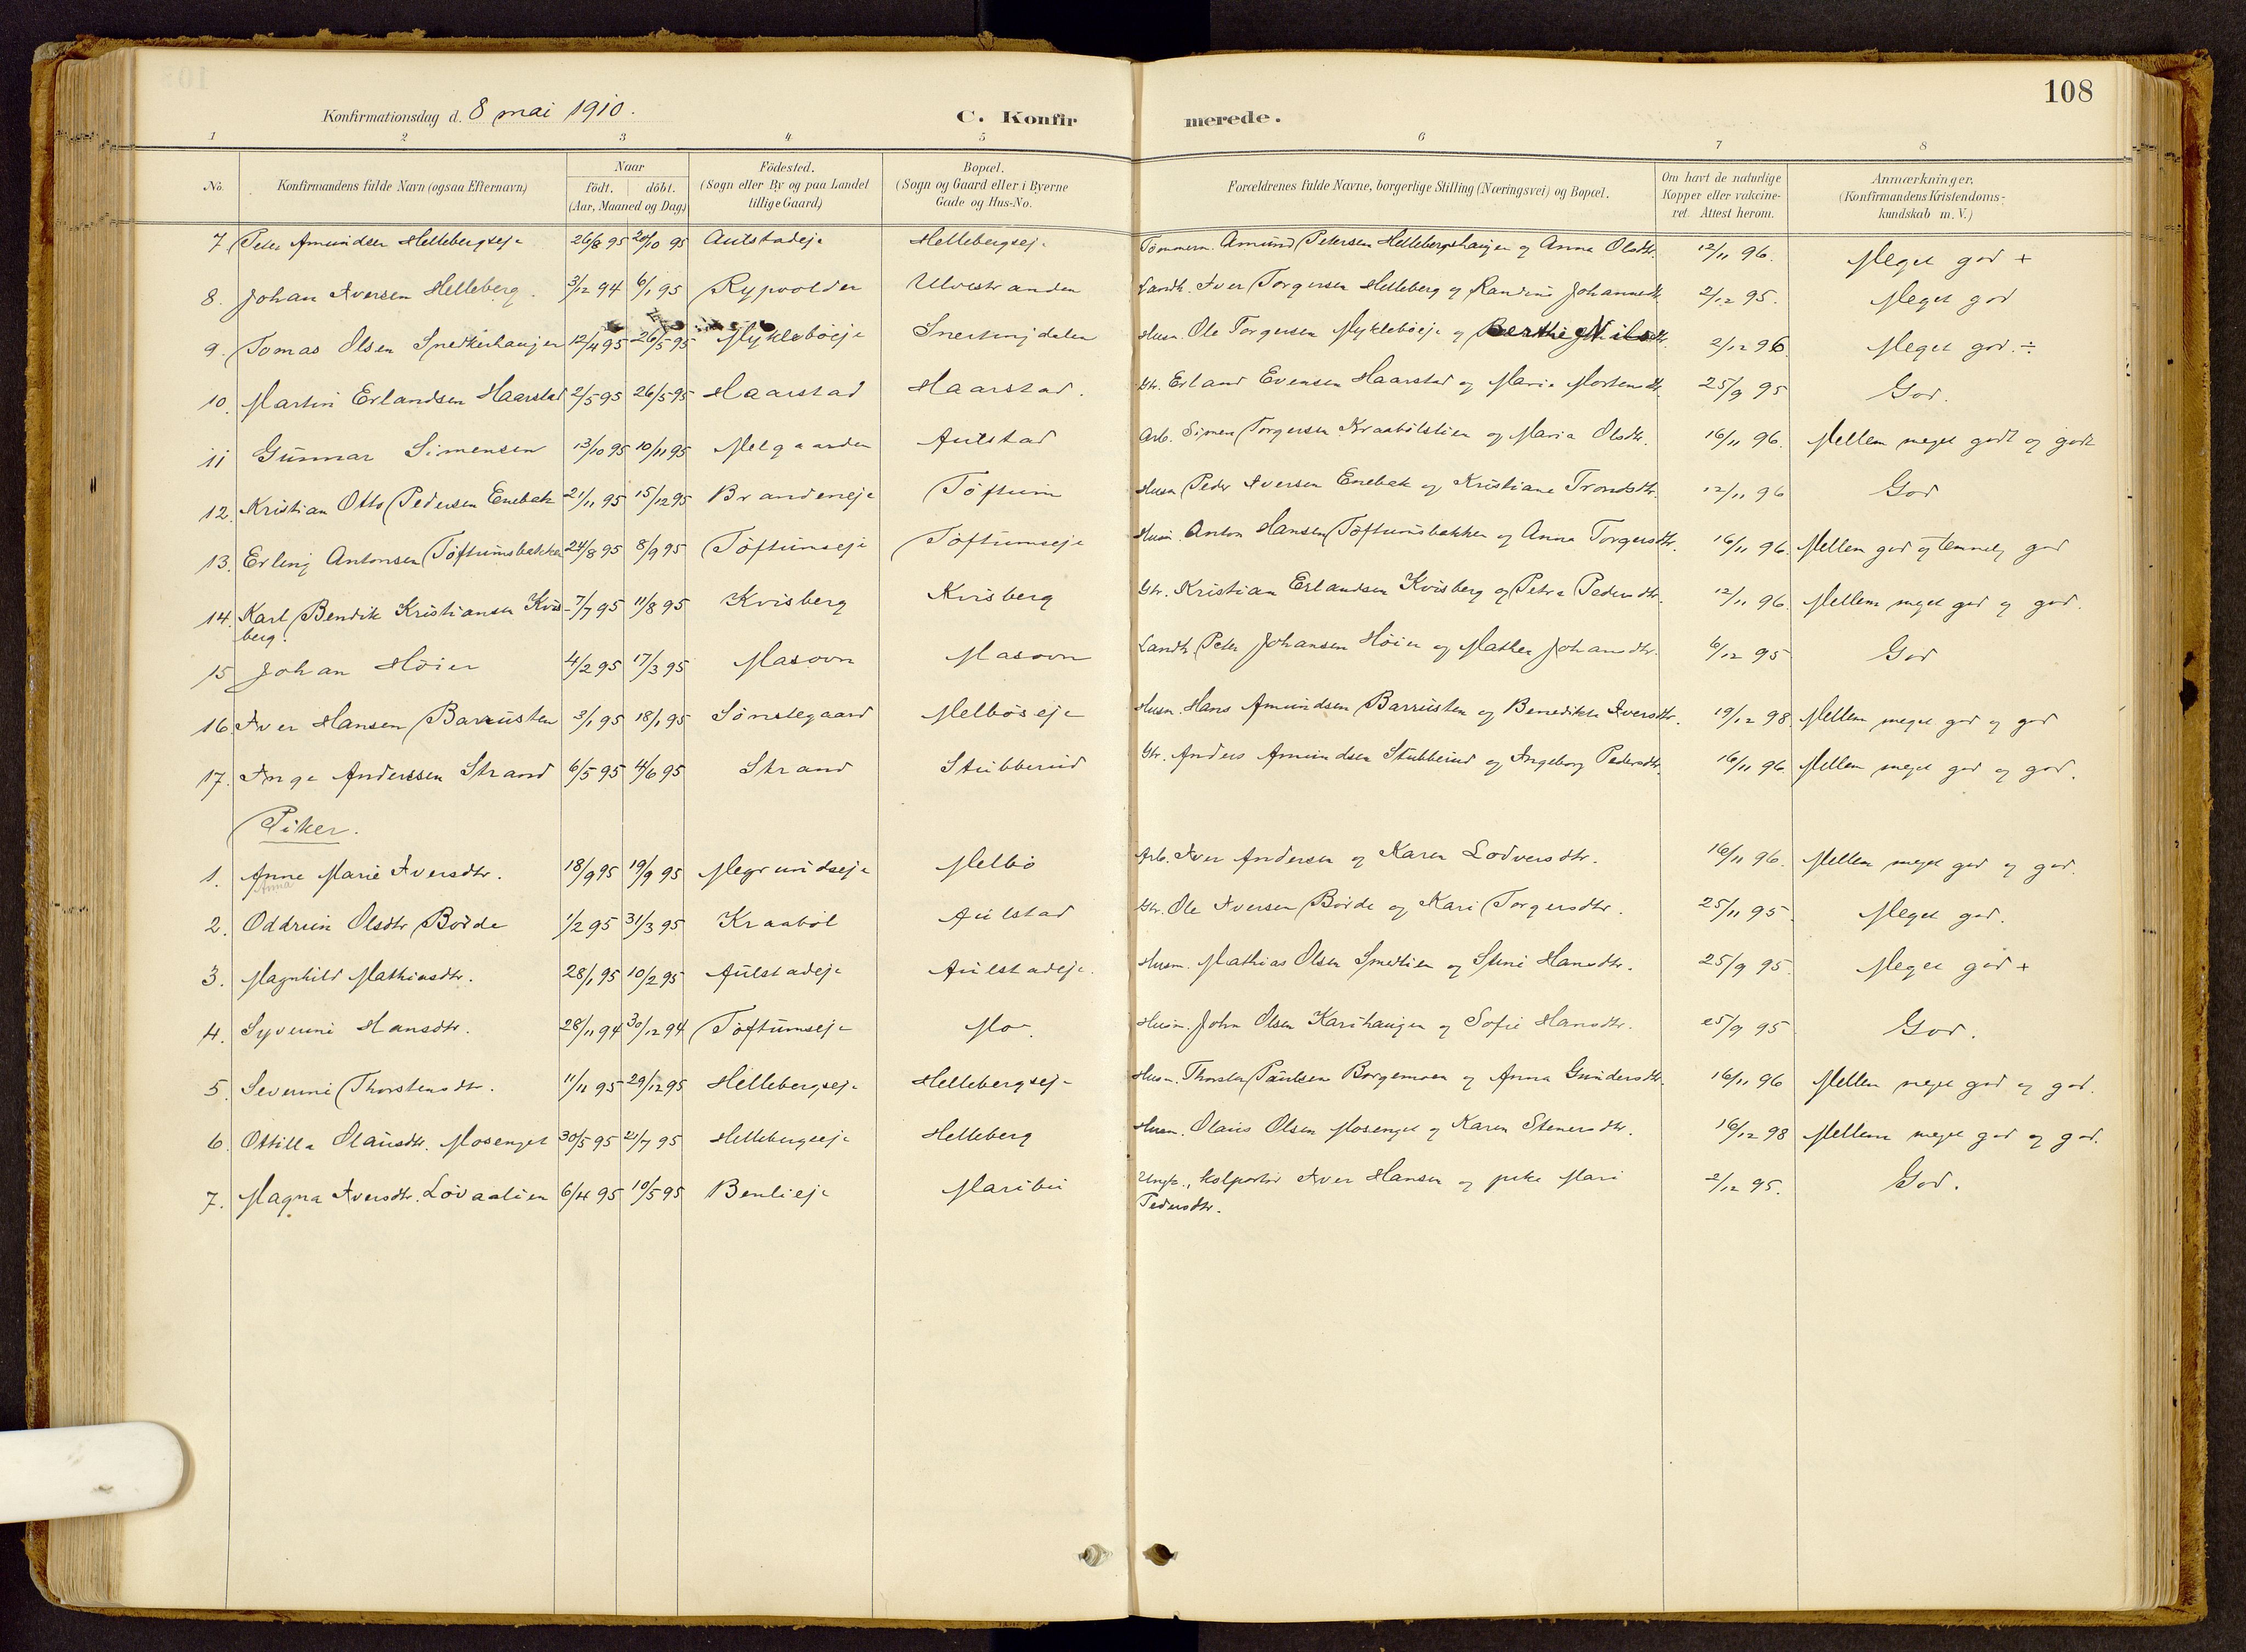 108
Konfirmationsdag d. 8 mai 1910. C. Konfirmerede.
1 2 3 4 5 6 7 8
No. Konfirmandens fulde Navn (ogsaa Efternavn) Naar födt. döbt. (Aar, Maaned og Dag) Födested. (Sogn eller By og paa Landet tillige Gaard) Bopæl. (Sogn og Gaard eller i Byerne Gade og Hus-No. Forældrenes fulde Navne, borgerlige Stilling (Næringsvei) og Bopæl. Om havt de naturlige Kopper eller vakcineret. Attest herom. Anmærkninger. (Konfirmandens Kristendomskundskab m. V.)
7. Peter Amundsen Hellebergseje 26/8 95 20/10 95 Aulstadeje Hellebergseje Tömmerm. Amund Petersen Hellebergshaugen og Anna Olsdtr. 12/11 96. Meget god +
8. Johan Iversen Helleberg. 3/12 94 6/1 95 Rypvolden Ulvestranden Landh. Iver Torgersen Helleberg og Randine Johannedtr. 2/12 95. Meget god
9. Tomas Olsen Snedkerhaugen 12/4 95 26/5 95 Mykleböeje Snertingdalen Husm. Ole Torgersen Mykleböeje og Berthe Nilsdtr. 2/12 96. Meget god. ÷
10. Martin Erlandsen Haarstad 2/5 95 26/5 95 Haarstad Haarstad. Gbr. Erland Evensen Haarstad og Marie Mortensdtr. 25/9 95 God.
11 Gunnar Simensen 13/10 95 10/11 95 Melgaarden Aulstad Arb. Simen Torgersen Kraabölslien og Maria Olsdtr. 16/11 96. Mellem meget godt og godt
12. Kristian Otto Pedersen Enebak 21/11 95 15/12 95 Brandeneje Töftum Husm Peder Iversen Enebak og Kristiane Trondsdtr. 12/11 96 God
13. Erling Antonsen Töftumsbakken 24/8 95 8/9 95 Töftumseje Töftumseje Husm. Anton Hansen Töftumsbakken og Anna Torgersdtr. 16/11 96. Mellem god og temmelig god
14. Karl Bendik Kristiansen Kvis- 7/7 95 11/8 95 Kvisberg Kvisberg Gbr. Kristian Erlandsen Kvisberg og Petra Pedersdtr. 12/11 96. Mellem meget god og god.
berg.
15 Johan Höier 4/2 95 17/3 95 Masovn Masovn Landh. Peter Johansen Höier og Mathea Johansdtr. 6/12 95 God
16. Iver Hansen Barrusten 3/1 95 18/1 95 Sönstegaard Melböseje Husm. Hans Amundsen Barrusten og Benedikte Iversdtr. 19/12 98. Mellem meget god og god
17. Inge Anderssen Strand 6/5 95 4/6 95 Strand Stubberud Gbr. Anders Amundsen Stubberud og Ingeborg Pedersdtr. 16/11 96. Mellem meget god og god.
Piker.
1. Anne Marie Iversdtr. 18/9 95 19/9 95 Megrundseje Melbö Arb. Iver Andersen og Karen Lodversdtr. 16/11 96. Mellem meget god og god.
Anna
2. Oddrun Olsdtr. Böide 1/2 95 31/3 95 Kraaböl Aulstad Gbr. Ole Iversen Böide og Kari Torgersdtr. 25/11 95. Meget god.
3. Magnhild Mathiasdtr. 28/1 95 10/2 95 Aulstadeje Aulstadeje. Husm. Mathias Olsen Smedlien og Stine Hansdtr. 25/9 95. Meget god +
4. Syverine Hansdtr. 28/11 94 30/12 94 Töftumseje Mo. Husm. John Olsen Karihaugen og Sofie Hansdtr. 25/9 95 God.
5. Severine Thorstensdtr. 11/11 95 29/12 95 Hellebergseje Hellebergseje Husm. Thorsten Paulsen Borgemoen og Anna Gundersdtr. 16/11 96 Mellem meget god og god.
6. Ottilla Olausdtr. Mosenget 30/5 95 21/7 95 Hellebergseje Helleberg Husm. Olaus Olsen Mosenget og Karen Stenersdtr. 16/12 98 Mellem meget god og god.
7. Magna Iversdtr. Lövaalien 6/4 95 10/5 95 Benlieje Maribu Ungk., kolportör Iver Hansen og pike Mari 2/12 95. God.
Pedersdtr.